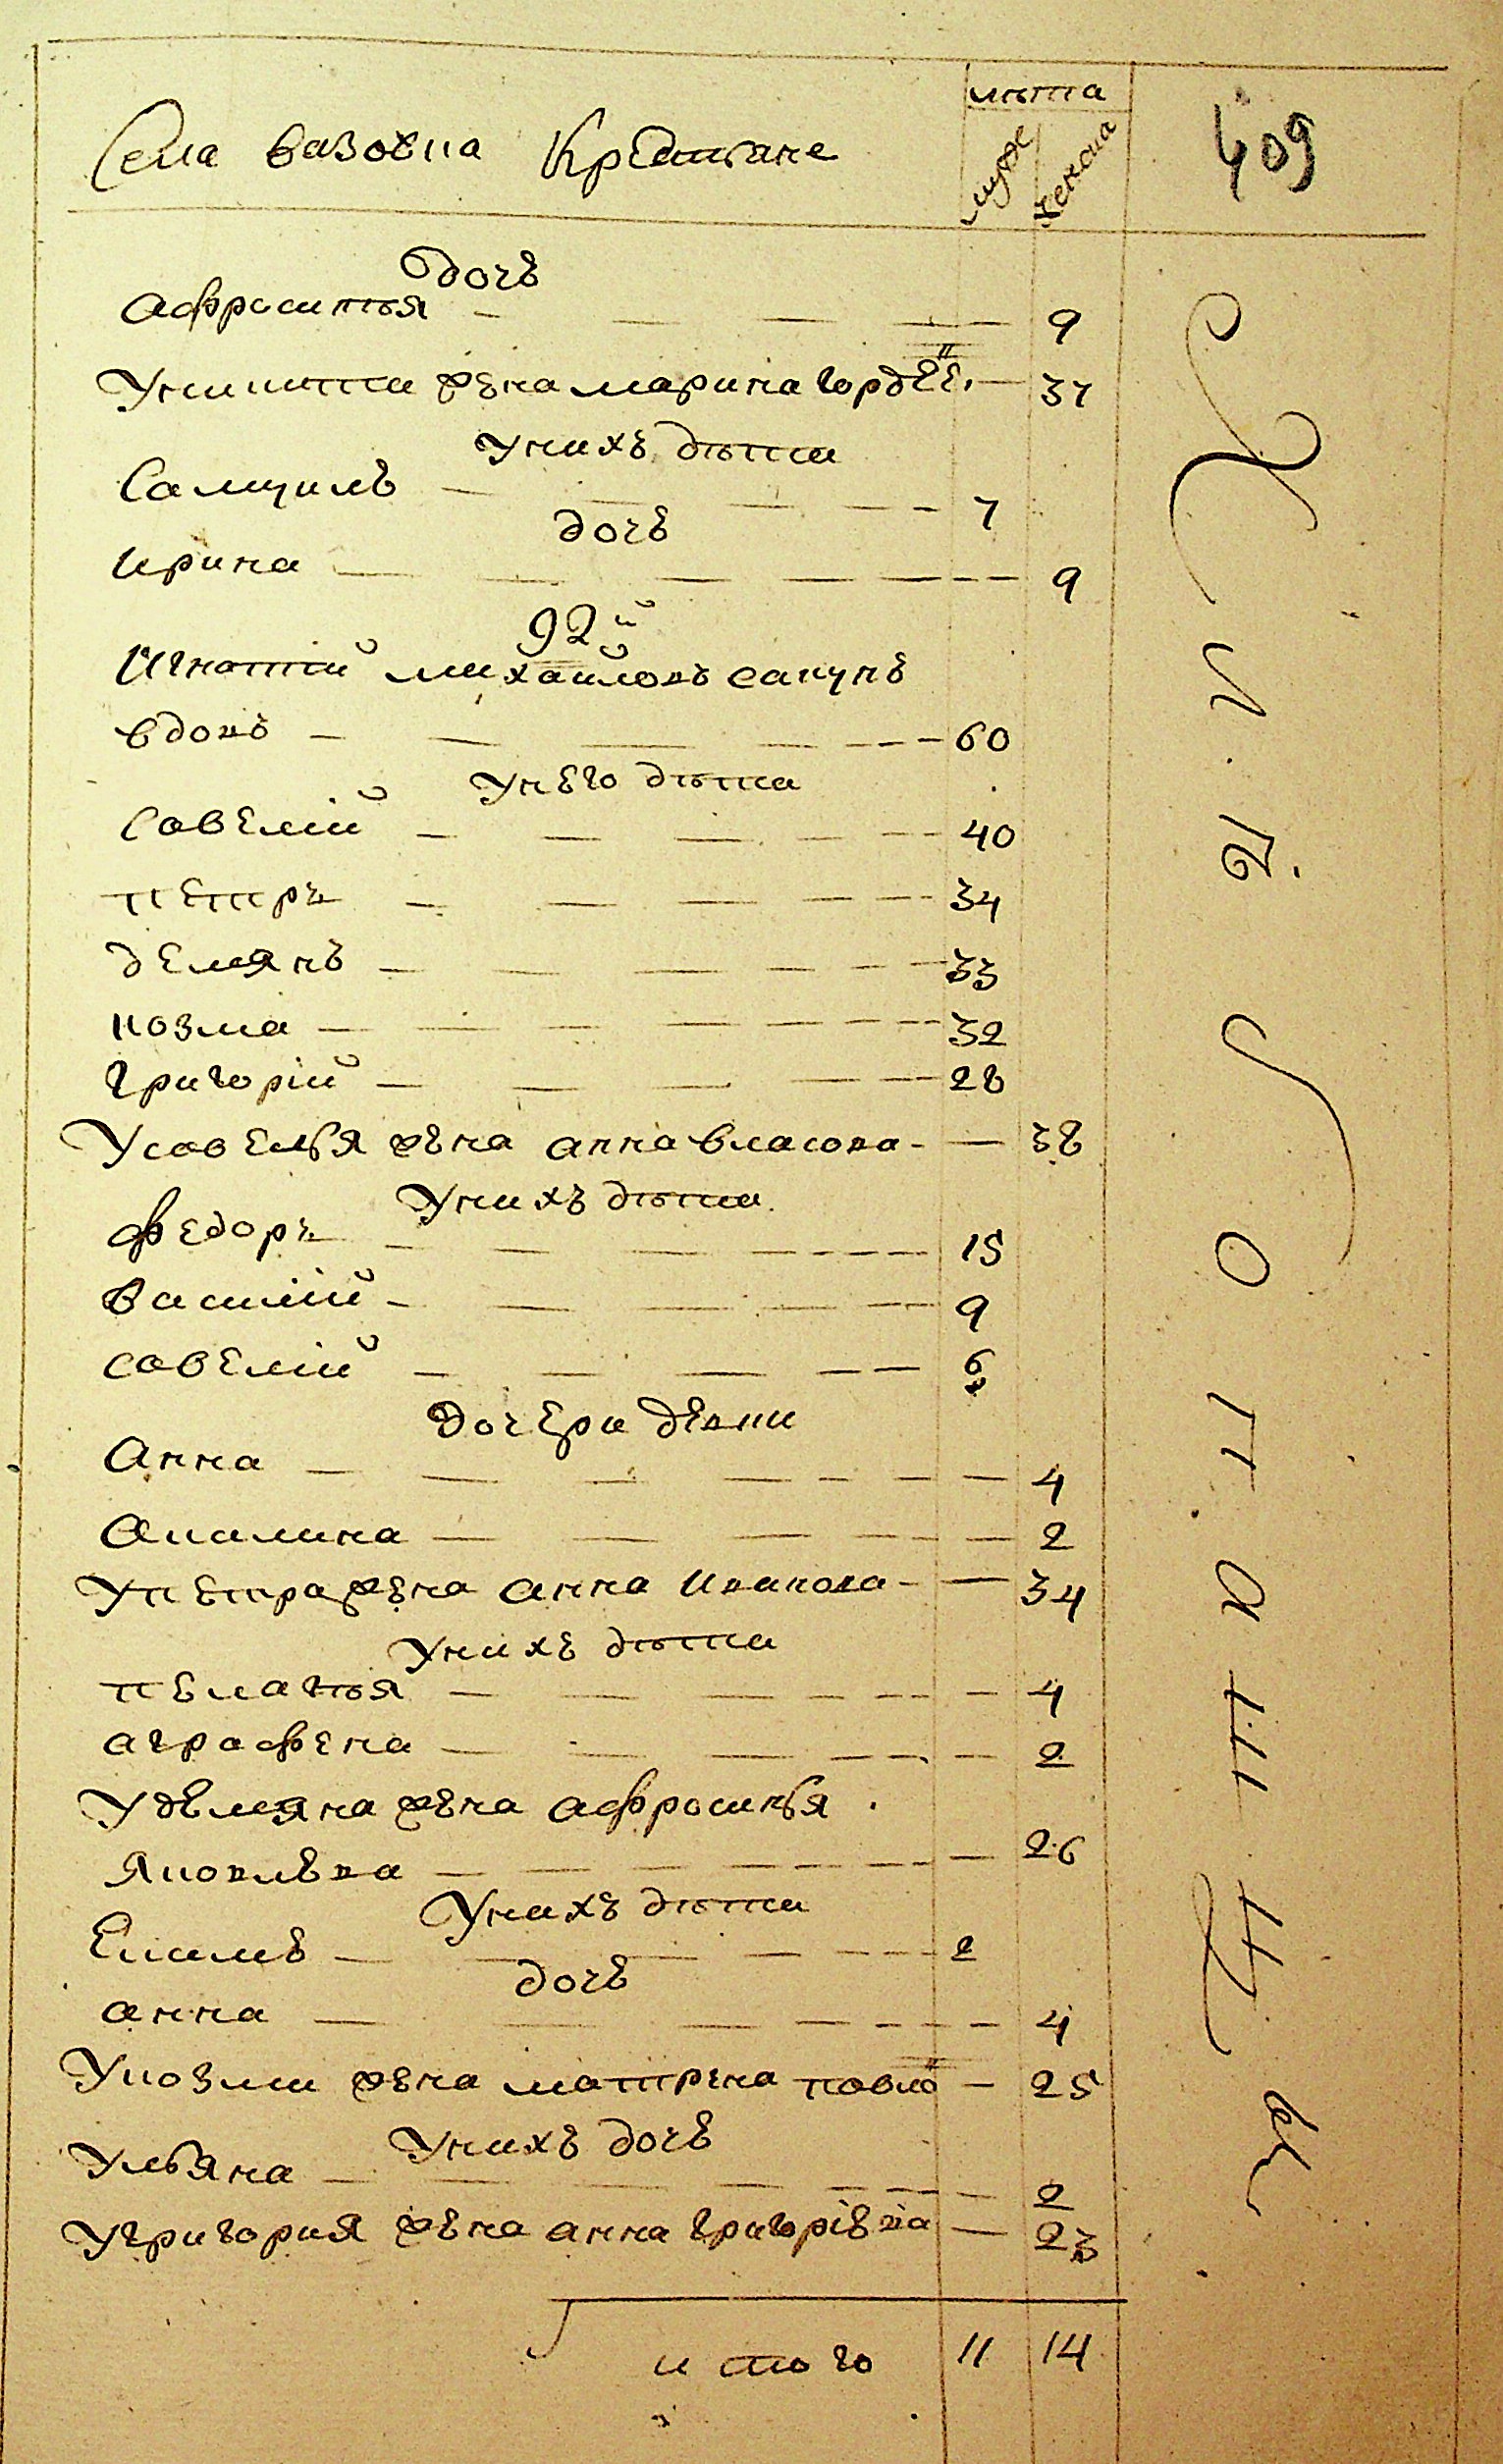 Села вазовка Крестьяне
лѣта
муже
женска
409
дочь
афросинья 9
Уникиты жена марина гордѣе. 37
Унихъ дѣти
Самуилъ 7
дочь
ирина 9
92й
Игнатий михайловъ сапунъ
вдовъ 60
Унего дѣти
Савелий 40
петръ 34
демянъ 33
козма 32
григорій 28
Усавелья жена анна власова 38
Унихъ дѣти
федоръ 15
василий 9
савелий 6
дочери девки
Анна 4
Акилина 2
Упетра жена анна иванова 34
Унихъ дѣти
пелагья 4
аграфена 2
Удемяна жена афросинья
яковлева 26
Унихъ дѣти
Екимъ 2
дочь
анна 4
Укозмы жена матрена павло 25
Унихъ дочь
Ульяна 2
Угригория жена анна григоріева 23
итого 11 14